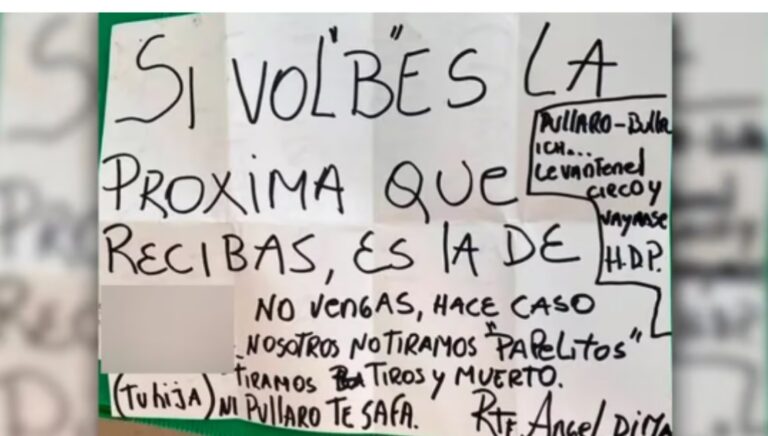 SI VOL"B"ES LA
PROXIMA QUE
RECIBAS, ES LA DE
PULLARO-Bullr
ICH...
Levanten el
CIRCO y
VAYANSE
H.D.P.
NO VENGAS, HACE CASO
NOSOTROS NO TIRAMOS "PAPELITOS"
TIRAMOS TIROS y MUERTO.
(Tu hija) NI PULLARO TE SAFA.
RTE. Angel DiMA